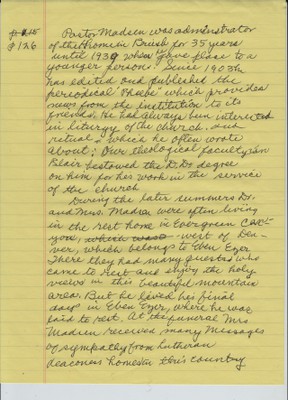 p 126
Pastor Madsen was administrator
of the Home in Brush for 35 years
until 1939 when he gave place to a
younger person. Since 1903 he
has edited and published the
periodical "Phebe" which provides
news from the institution to its
friends. He had always been interested
in liturgy of the church and
ritual, which he often wrote
about. Our theological faculty in
Blair bestowed the D.D. degree
on him for his work in the service
of the church
During the later summers Dr.
and Mrs. Madsen were often living
in the rest home in Evergreen Can-
yon, west of Den-
ver, which belongs to Eben Ezer
There they had many guests who
came to rest and enjoy the holy
views in this beautiful mountain
area. But he lived his final
days in Eben Ezer, where he was
laid to rest. At the funeral Mrs
Madsen received many messages
of sympathy from Lutheran
deacones homes in this country